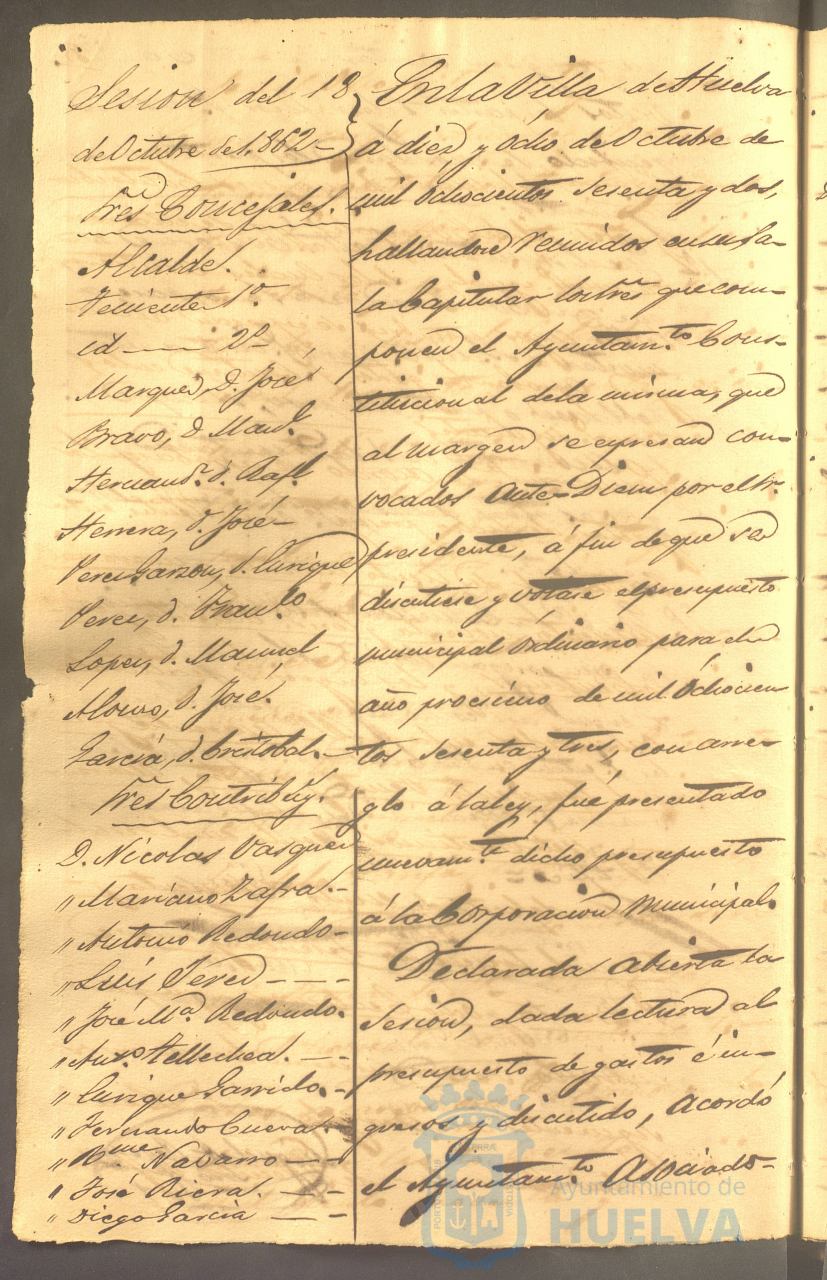 Sesion del 18
de Octubre de 1.862-
Sres. Concejales.
Alcalde.
Teniente 1º.
id —— 2º
Marquez, D. José
Bravo, d. Manl.
Hernandz. d. Rafl.
Herrera, d. José-
Perez Garzon, d. Enrique
Perez, d. Franco
Lopez, d. Manuel
Alonso, d. José.
Garcia, d. Cristobal.-
Sres. Contribuy.
D. Nicolas Vasquez
" Mariano Zafra.-
" Antonio Redondo-
" Luis Perez - - -
" José Ma. Redondo.
" Anto Tellechea. - -
" Enrique Garrido.-
" Fernando Cueva.-
" Bme. Navarro - -
" José Riera. - -
" Diego Garcia - -
En la Villa de Huelva
á diez y ócho de Octubre de
mil ôchocientos sesenta y dos,
hallandose reunidos en su Sa-
la Capitular los Sres. que com-
ponen el Ayuntamto. Cons-
titucional de la misma, que
al margen se espresan con-
vocados ante-Diem por el Sr.
presidente, á fin de que se
discutiese y votáse el presupuesto
municipal órdinario para el
año procsimo de mil ôchocien
tos sesenta y tres, con arre-
glo á la ley, fué presentado
nuevamte. dicho presupuesto
á la Corporacion Municipal.
Declarada abierta la
Sesion, dada lectura al
presupuesto de gastos é in-
gresos y discutido, acordó
el Ayuntamto. Asociado-
Ayuntamiento de
HUELVA